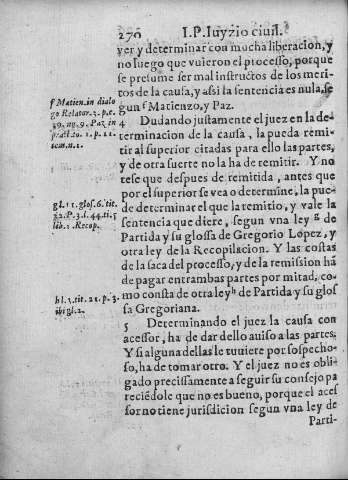 276 I.P. Iuyzio ciuil.
ver y determinar con mucha liberacion, y
no luego que vuieron el processo, porque
se presume ser mal instructos de los meri-
tos de la causa, y assi la sentencia es nula, se
gun f Matienzo, y Paz.
4 Dudando justamente el juez en la de-
terminacion de la causa, la pueda remi-
tir al superior citadas para ello las partes,
y de otra suerte no la ha de remitir. Y no
tese que despues de remitida, antes que
por el superior se vea o determine, la pue-
de determinar el que la remitio, y vale la
sentencia que diere, segun vna ley g de
Partida y su glossa de Gregorio Lopez, y
otra ley de la Recopilacion. Y las costas
de la saca del processo, y de la remission hã
de pagar entrambas partes por mitad, co-
mo consta de otra ley h de Partida y su glos
sa Gregoriana.
5 Determinando el juez la causa con
acessor, ha de dar dello auiso a las partes.
Y si alguna dellas le tuuiere por sospecho-
so, ha de tomar otro. Y el juez no es obli-
gado precissamente a seguir su consejo pa
reciẽdole que no es bueno, porque el aces
sor no tiene jurisdicion segun vna ley de
Parti-
f Matien. in dialo
go Relator. 3. p. c.
39. nu. 9. Paz in
pract. to. 1. p. 11.
tem. n. 1.
gl. 11. glos. 6. tit.
22. P. 3. d. 44. ti. 5
lib. 2. Recop.
h l. 3. tit. 21. p. 3.
ibi gl. 2.